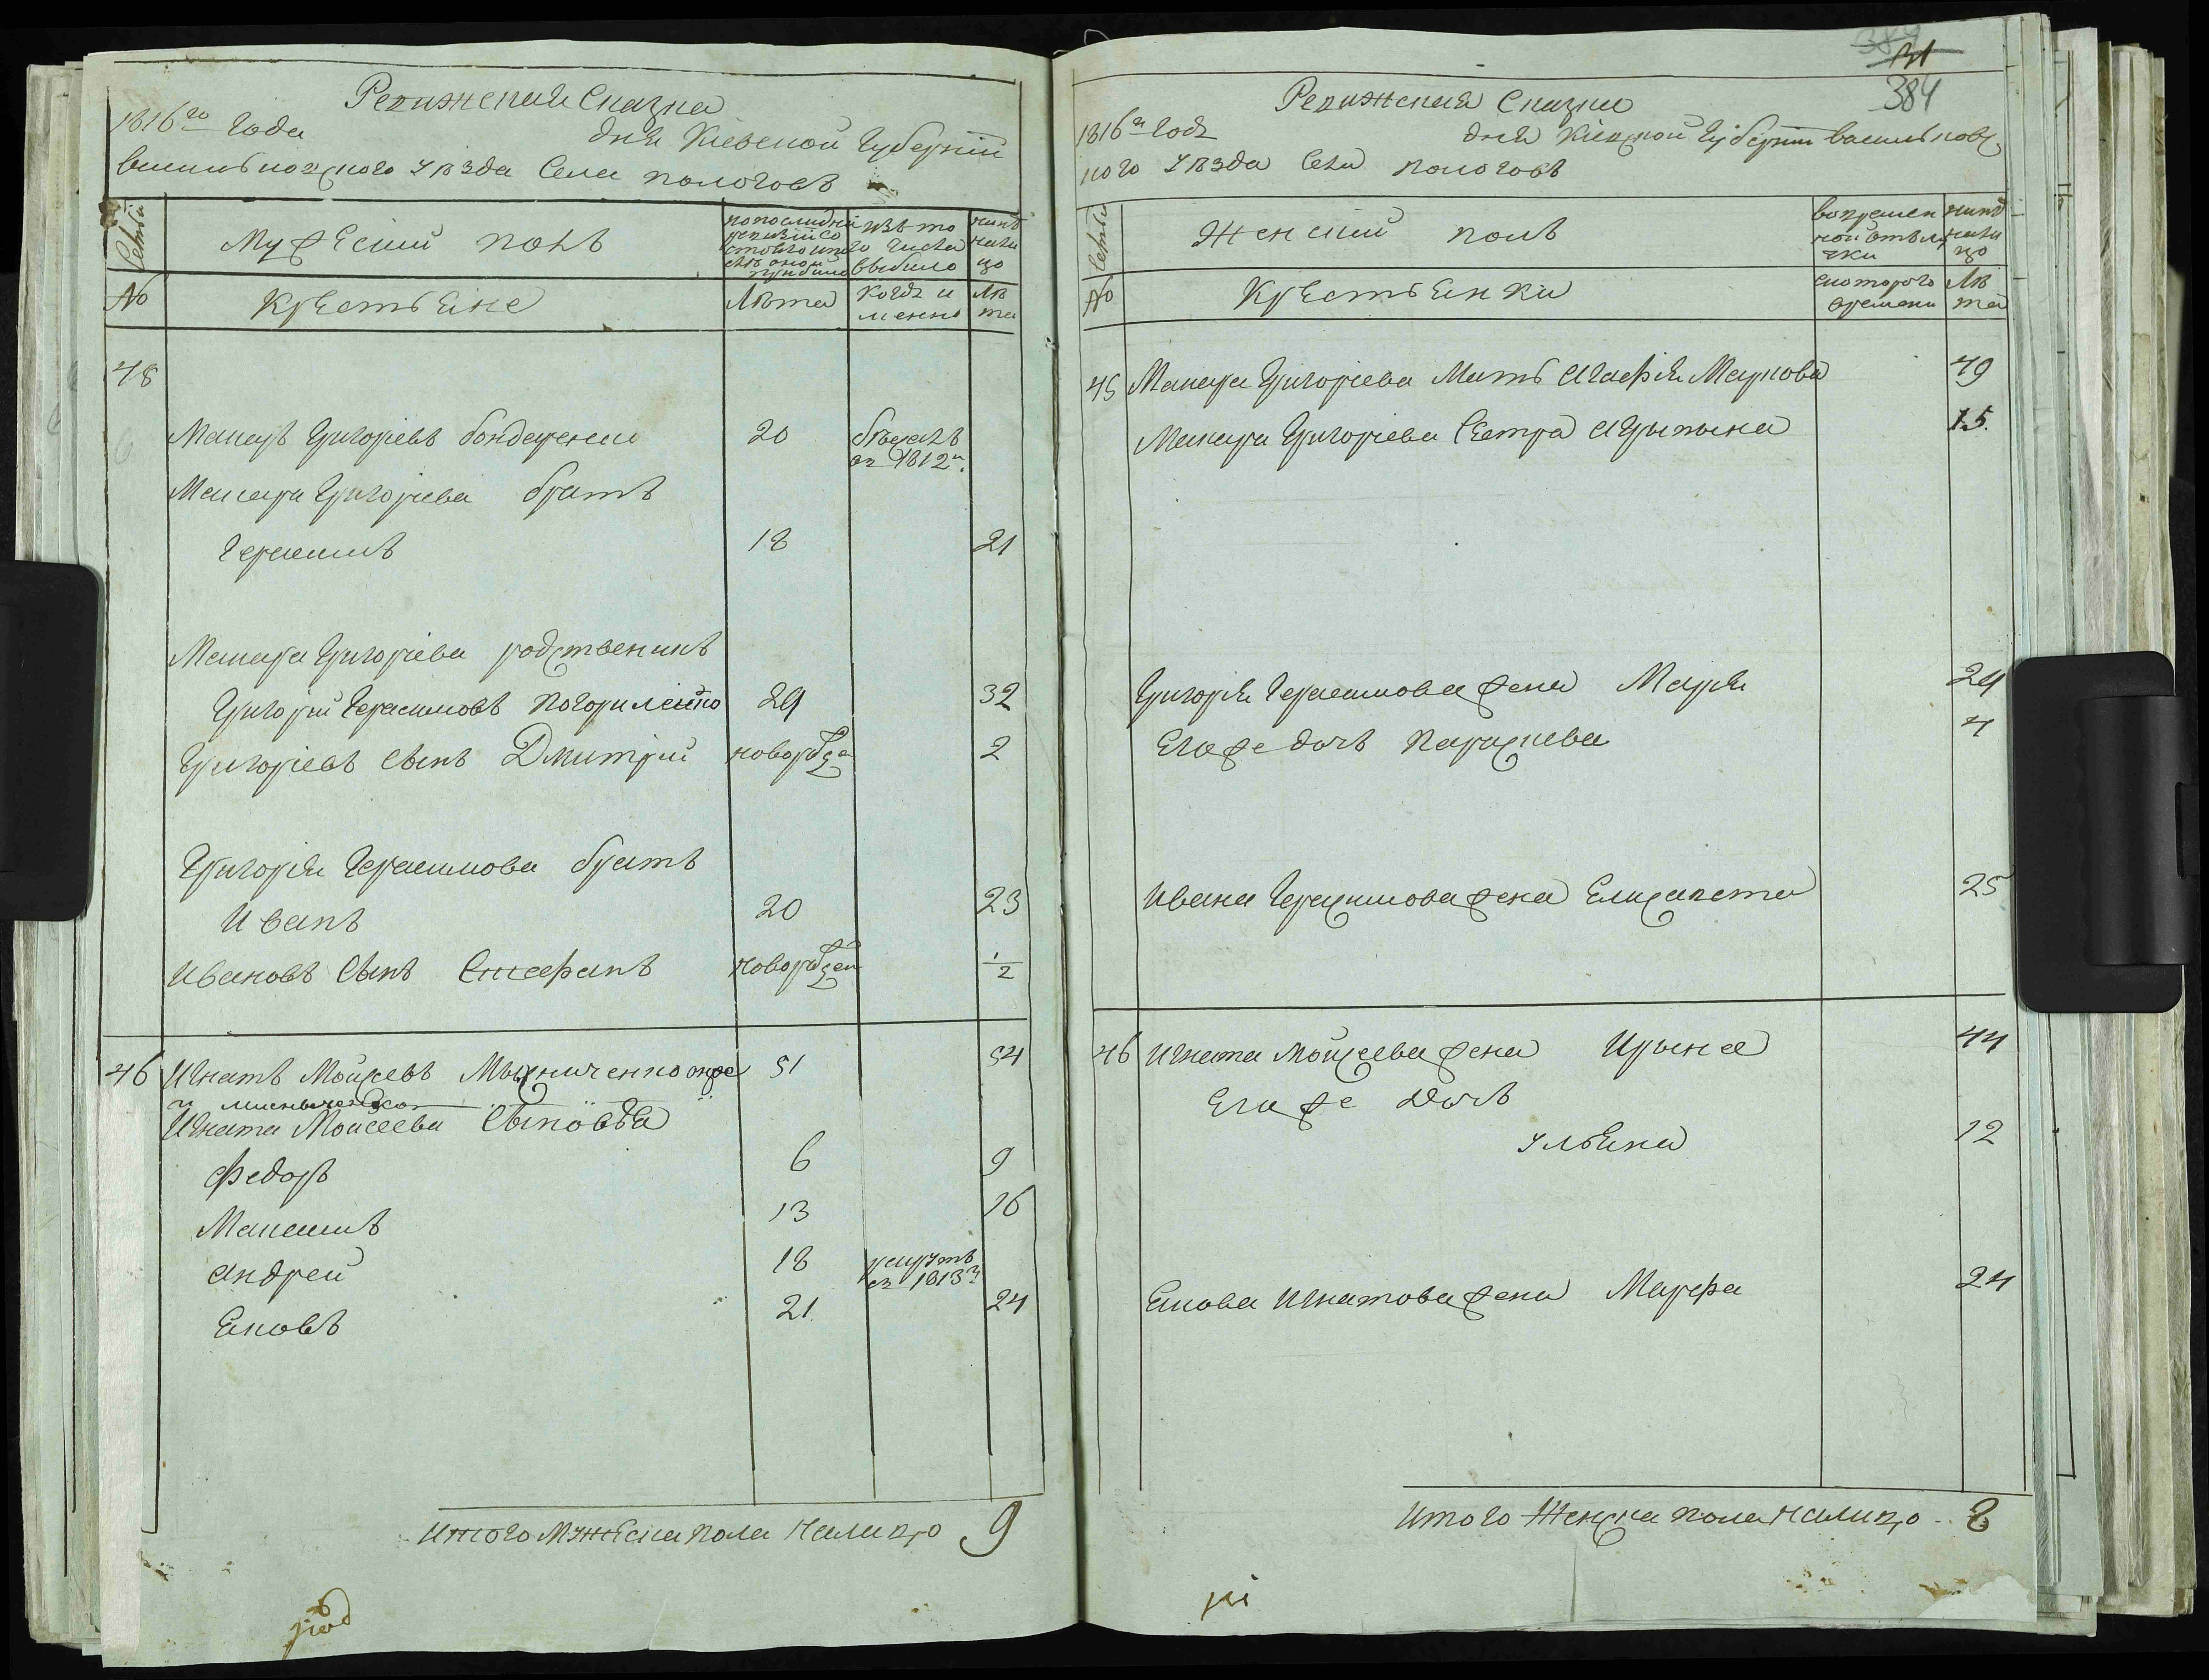 Ревижская Сказка
1816го года дня Киевской Губернїи
васильковского уезда Села пологовъ
Семьи
Мужеский полъ
по последней ревизїи со стояло и после оной прибыло
изъ то го числа выбыло
нынѣ на ли цо
№
Крестьяне
Лѣта
когда и менно
Лѣ та
45
Макаръ Григорїевъ бондаренко 20 бѣжалъ въ 1812м.
Макара Григорїева братъ
Герасимъ 18 21
Макара Григорїева родственикъ
Григорїй Герасимовъ погориленко 29 32
Григорїевъ Сынъ Дмитрїй новорожде 2
Григорїя Герасимова братъ
Иванъ 20 23
Ивановъ Сынъ Стефанъ новорожден 1/2
46 Игнатъ Мойсеевъ 51 54
Игната Моисеева Сыновья
Федоръ 6 9
Максимъ 13 16
Андрей 18 рекрутъ въ 1813м
Яковъ 21 24
Итого мужеска пола налицо 9
131
384
Ревижская Сказка
1816го года дня Киевской Губернїи васильковс
кого уезда Села пологовъ
Семьи
Женский полъ
во времен ной отълу чки
нынѣ нали цо
№
Крестьянки
Скоторого времени
Лѣ та
45 Макара Григорїева Мать Агафїя Маркова 49
Макара Григорїева Сестра Агрыпына 15.
Григорїя Герасимова жена Марїя 24
Егоже дочь Параскева 4
Ивана Герасимова жена Елисавета 25
46 Игната Мойсеева жена Ирына 44
Егоже дочь
Ульяна 12
Якова Игнатова жена Марфа 24
Итого Женска пола налицо 8